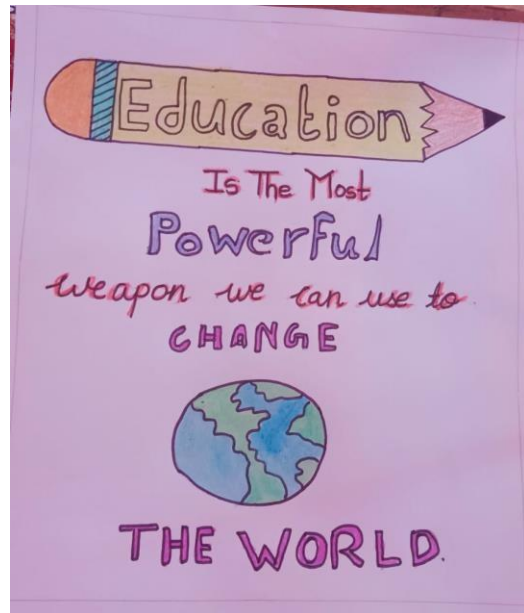 Education
Is The Most
Powerful
weapon we can use to
CHANGE
THE WORLD.